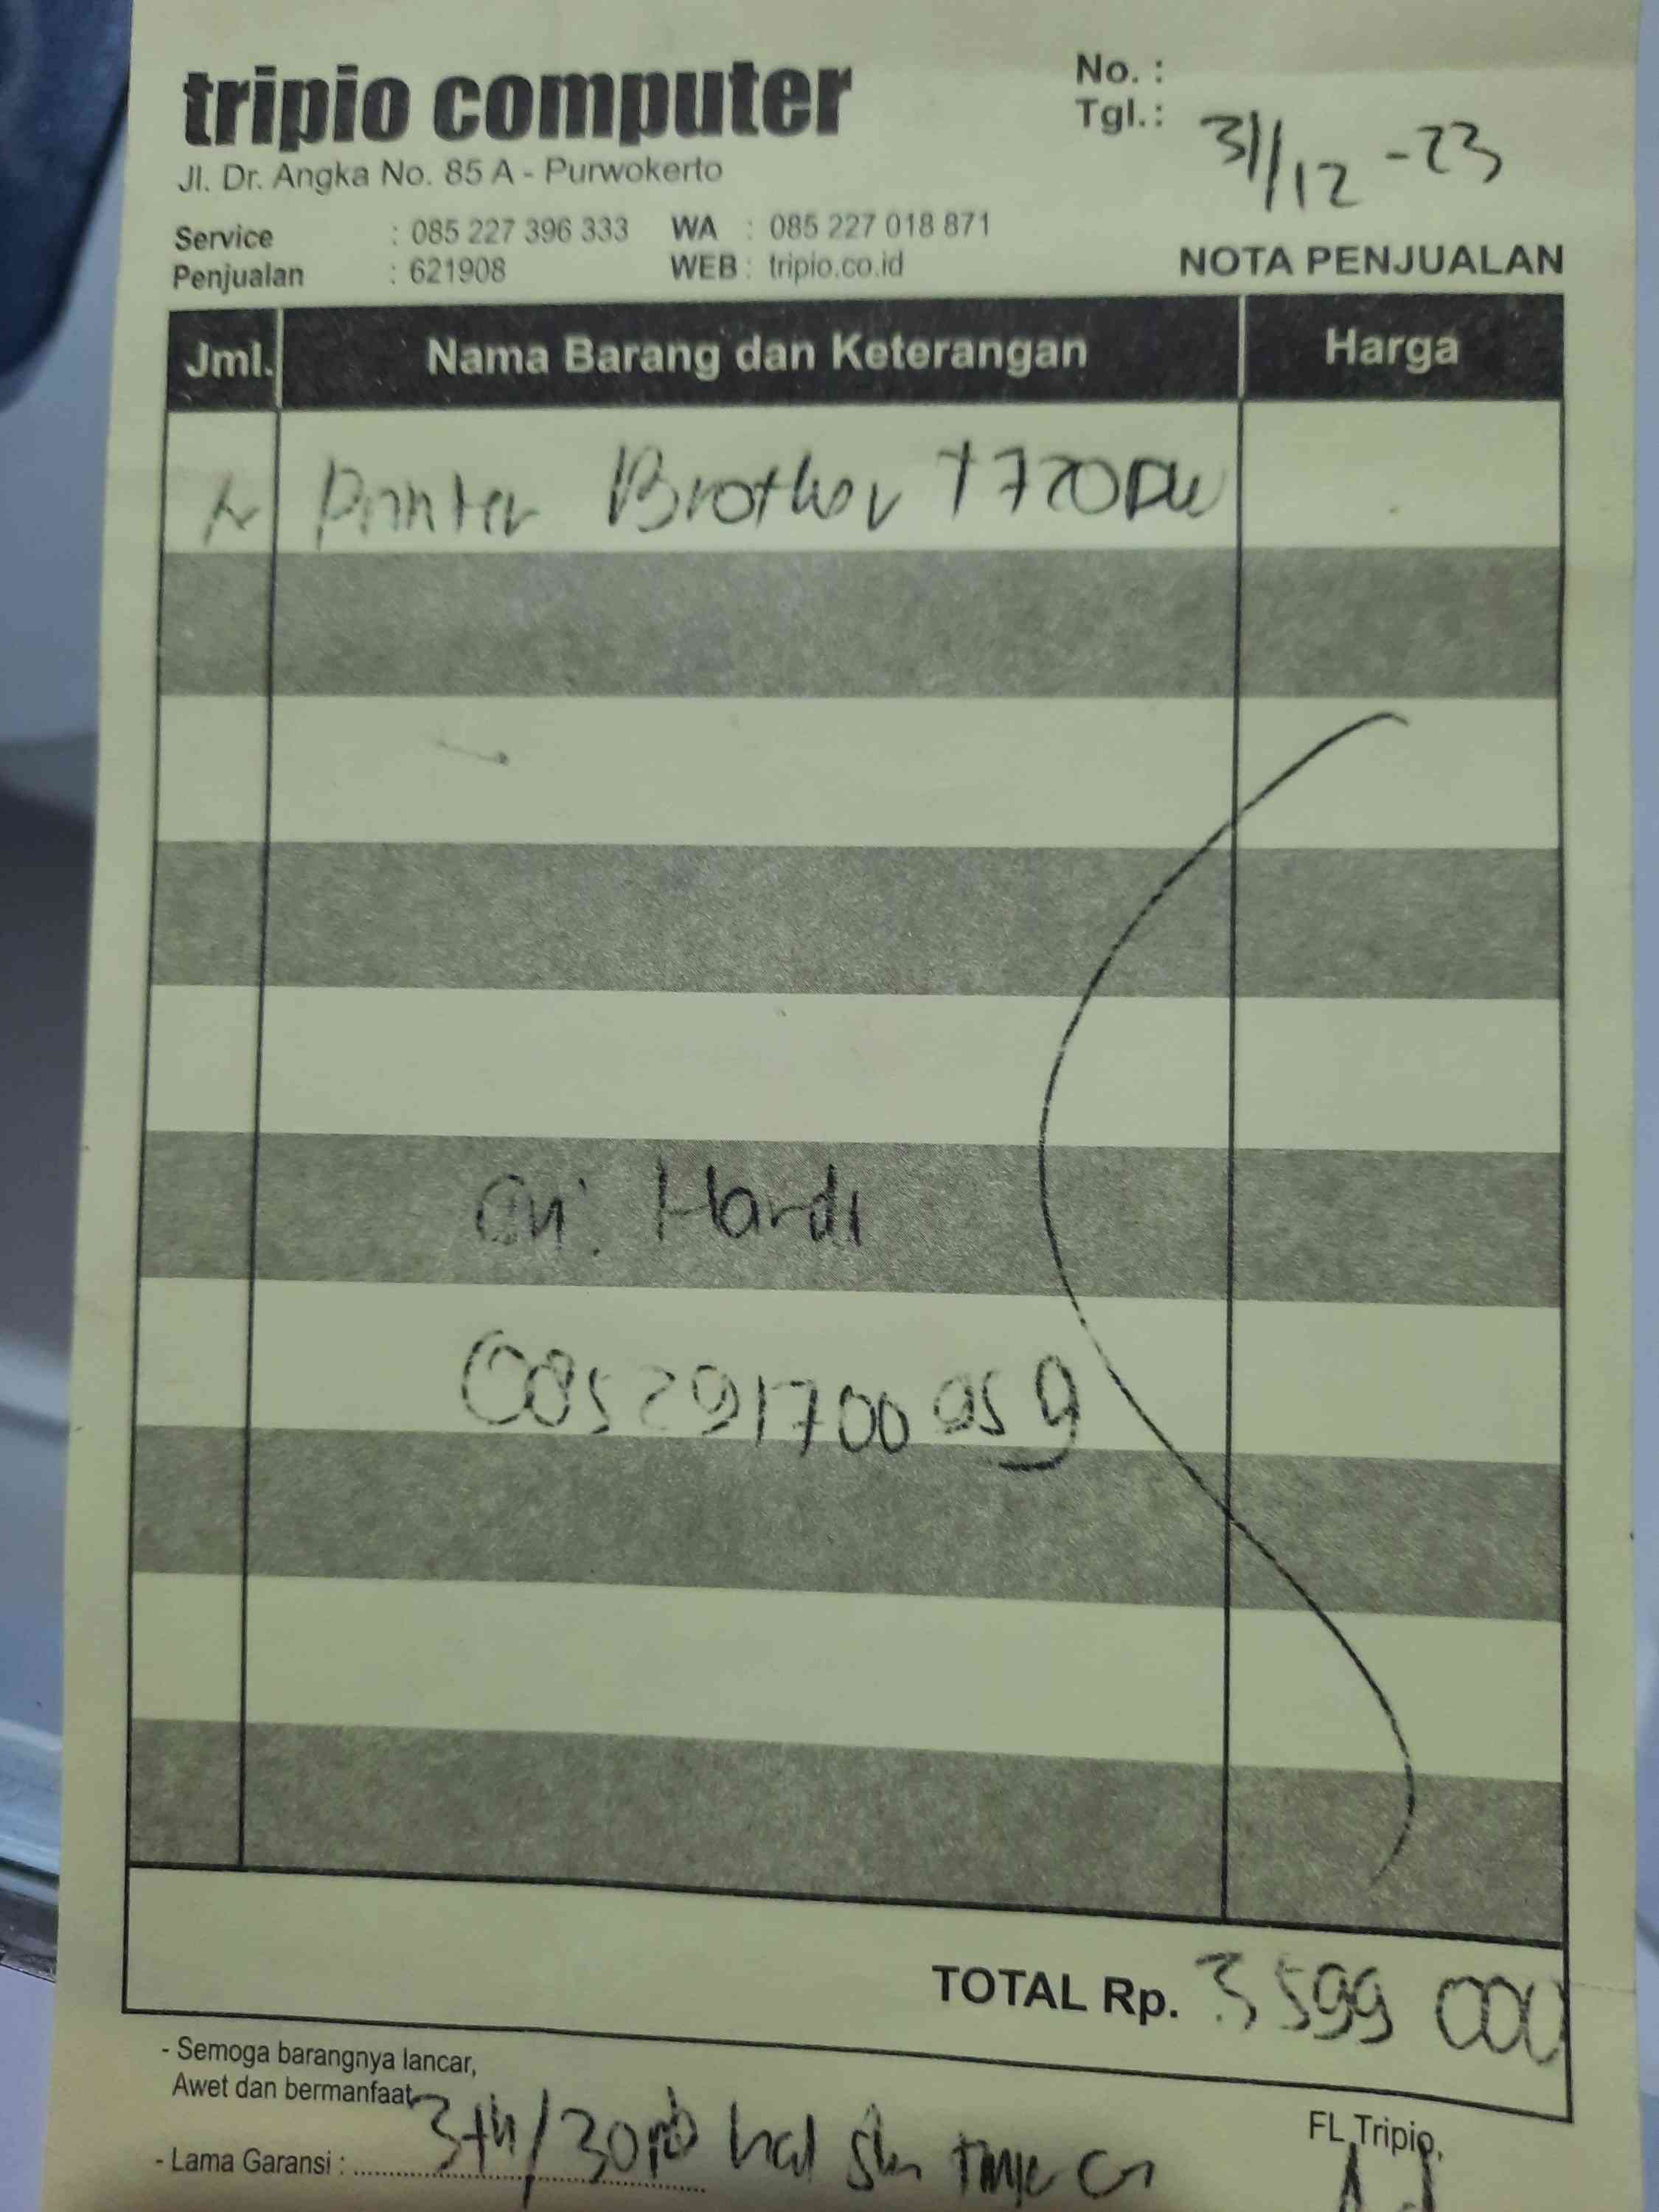 tripio computer
No. :
Tgl.: 31/12 -23
Jl. Dr. Angka No. 85 A - Purwokerto
Service : 085 227 396 333 WA : 085 227 018 871
Penjualan : 621908 WEB : tripio.co.id
NOTA PENJUALAN
Jml. Nama Barang dan Keterangan Harga
Printer Brother T720DW
Hardi
085291700959
TOTAL Rp. 3 599 000
- Semoga barangnya lancar,
Awet dan bermanfaat
- Lama Garansi : 3th/30rb hal
FL Tripio,